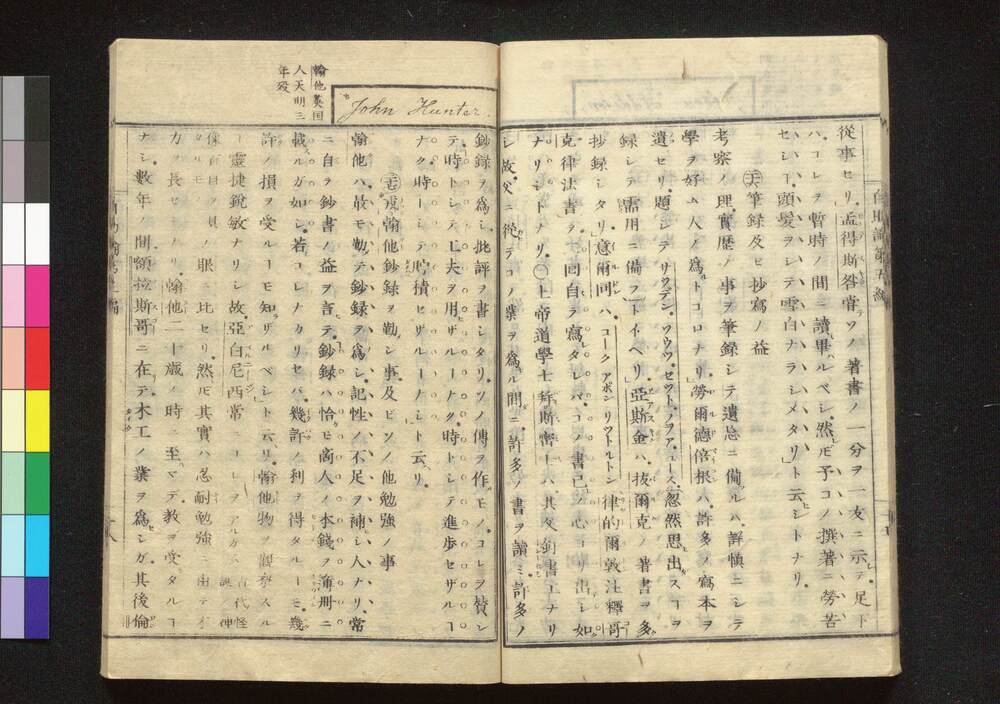 從事セリ孟得斯咎膏ソノ著書ノ一分ヲ一友ニ示テ足下
ハコレヲ暫時ノ間ニ讀畢ルベシ然ドモ予コノ撰著ニ勞苦
セシヿ頭髮ヲシテ雪白ナラシメタリト云シトナリ
筆録及ビ抄寫ノ益
考察ノ理實歴ノ事ヲ筆録シテ遺忘ニ備ルハ詳愼ニシテ
學ヲ好ム人ノ爲トコロナリ勞爾德倍根ハ許多ノ寫本ヲ
遺セリ題シテサツデンソウツセットノフアユース忽然思出スヿヲ
録シテ需用ニ備フトイヘリ亞斯金ハ抜爾克ノ著書ヲ多
抄録シタリ意爾同ハコークアポンリツトルトン律的爾敦注釋哥
克律法書ヲ二回自ラ寫タレバコノ書己ノ心ヨリ出シ如
ナリシトナリ○上帝道學士斯密士ハ其父釘書工ナリ
シ故父ニ從テコノ業ヲ爲ル間ニ許多ノ書ヲ讀ミ許多ノ
John Hunter.
翰他英国
人天明三
年歿
鈔録ヲ爲シ批評ヲ書シタリソノ傳ヲ作モノコレヲ賛シ
テ時トシテ工夫ヲ用ザルヿナク時トシテ進歩セザルヿ
ナク時トシテ貯積セザルヿナシト云リ
戎翰他鈔録ヲ勤シ事及ビソノ他勉強ノ事
翰他ハ最モ勤テ鈔録ヲ爲シ記性ノ不足ヲ補シ人ナリ常
ニ自ラ鈔書ノ益ヲ言テ鈔録ハ恰モ商人ノ本錢ヲ簿冊ニ
載ルガ如シ若コレナカリセバ幾許ノ利ヲ得タルヿモ幾
許ノ損ヲ受ルヿモ知ザルベシト云リ翰他物ヲ觀察スル
ヿ靈捷鋭敏ナリシ故亞白尼西常ニコレヲアルガス
ノ眼ニ比セリ然ドモ其實ハ忍耐勉強ニ由テ
力ヲ長セシナリ翰他二十歳ノ時ニ至マデ教ヲ受タルヿ
ナシ數年ノ間額拉斯哥ニ在テ木工ノ業ヲ爲シガ其後倫